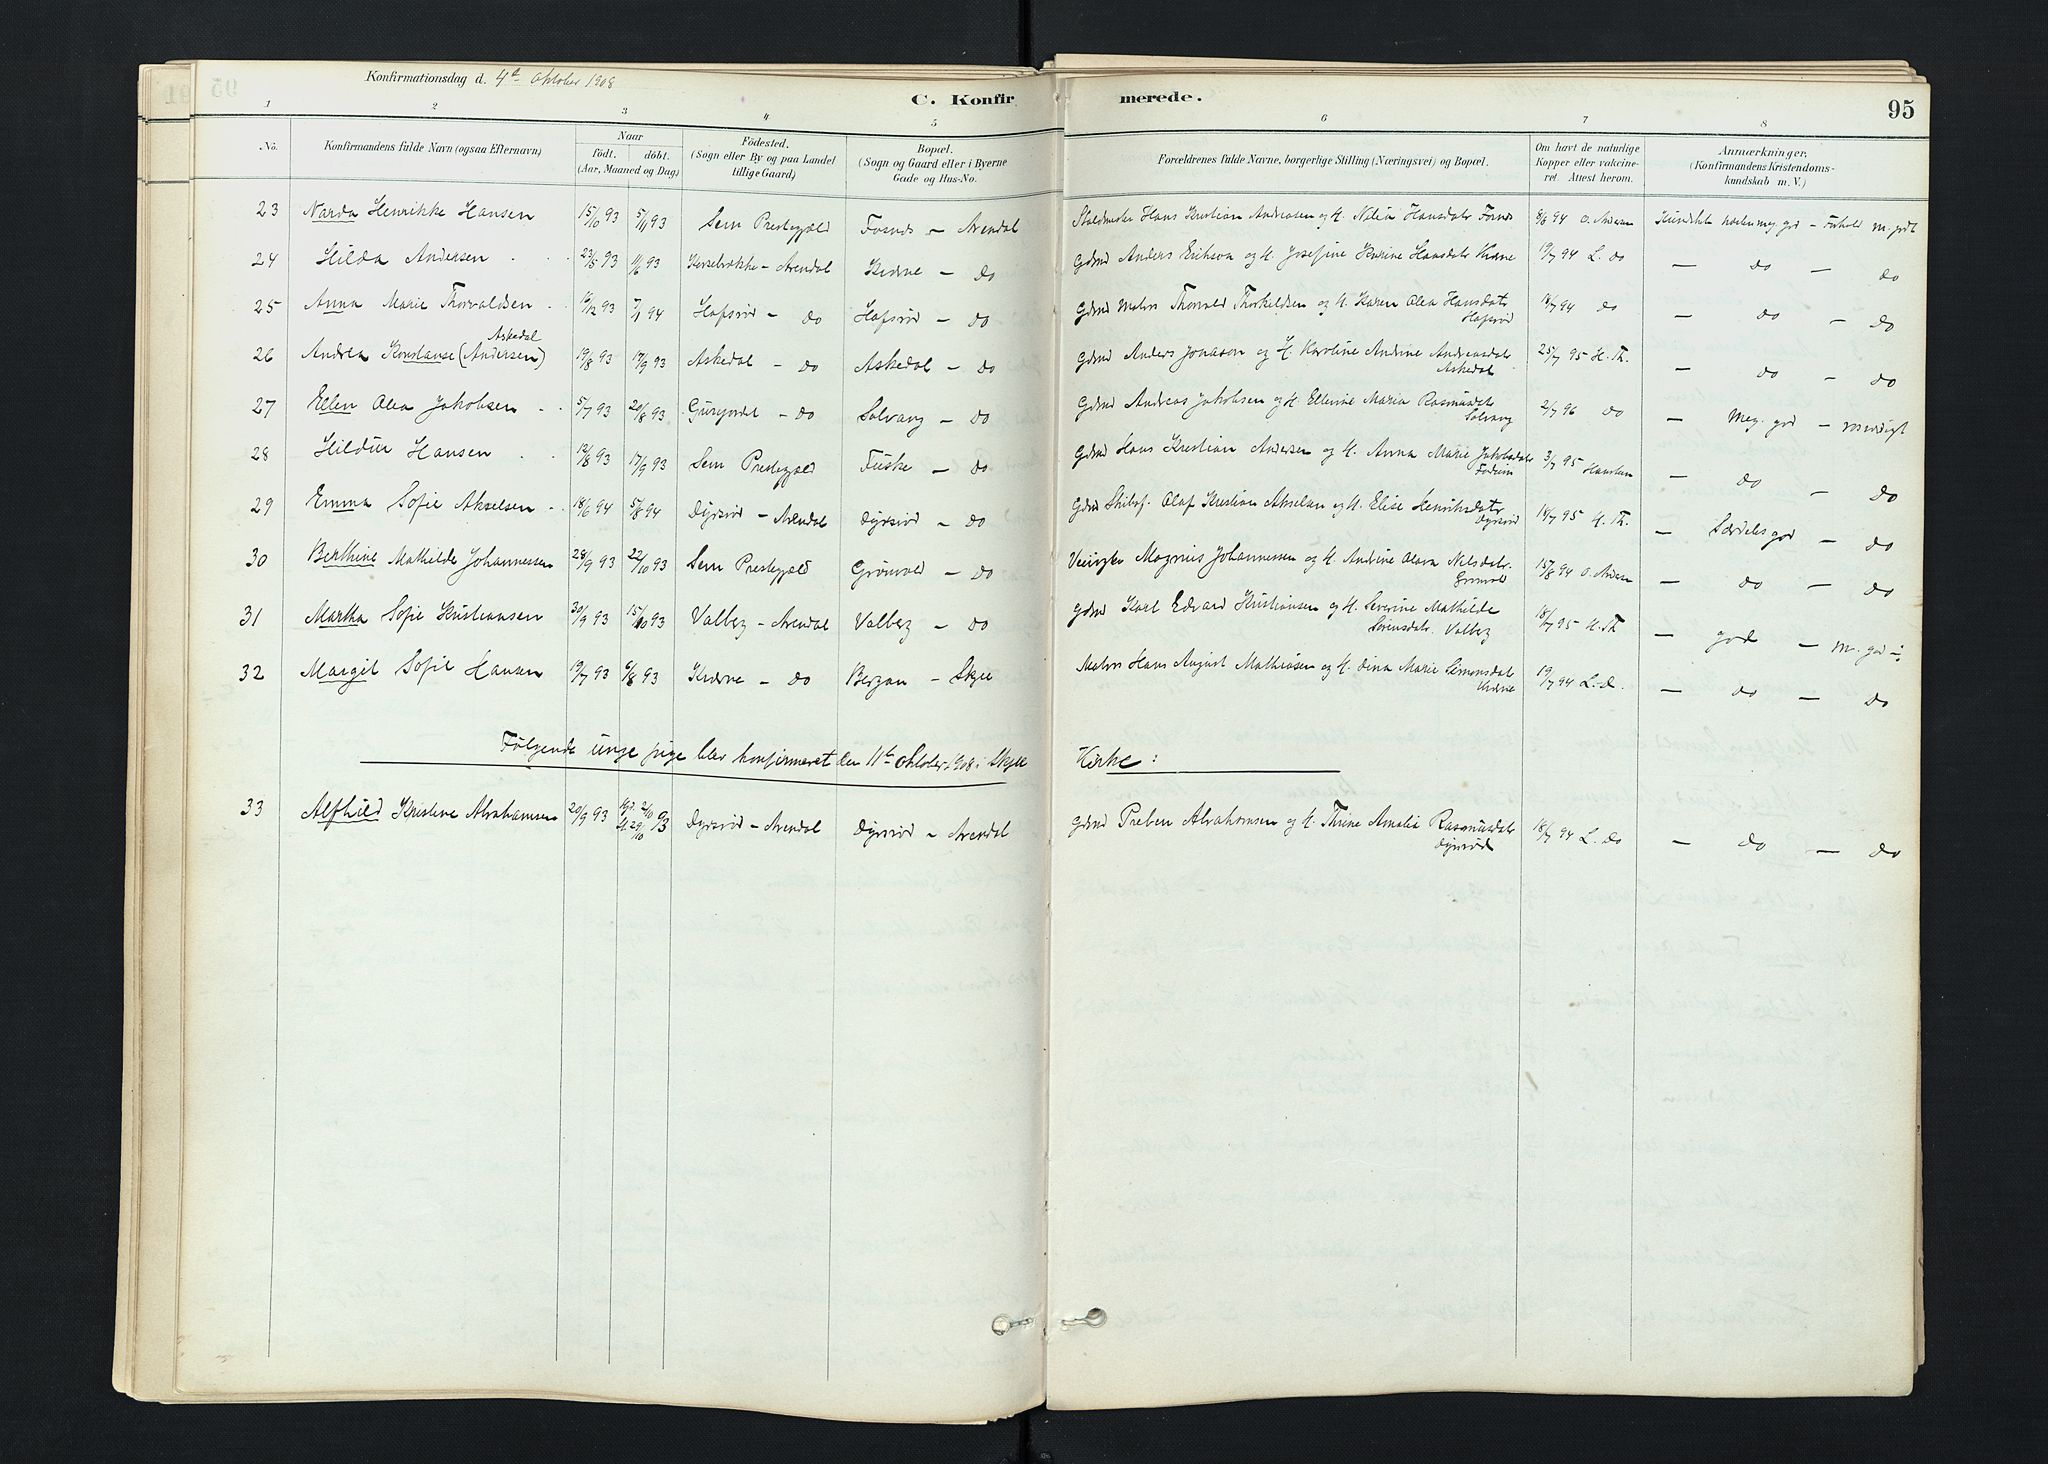 Konfirmationsdag d. 4de Oktober 1908
C. Konfirmerede. 95
1 2 3 4 5 6 7 8
No. Konfirmandens fulde Navn (ogsaa Efternavn) Naar født. døbt. (Aar, Maaned og Dag) Fødested. (Sogn eller By og paa Landet tillige Gaard) Bopæl. (Sogn og Gaard eller i Byerne Gade og Hus-No. Forældrenes fulde Navne, borgerlige Stilling (Næringsvei) og Bopæl. Om havt de naturlige Kopper eller vakcineret. Attest herom. Anmærkninger. (Konfirmandens Kristendomskundskab m. V.)
23 Narda Henrikke Hansen 15/10 93 5/11 93 Sem Prestegjæld Fosnes – Arendal Hans Kristian Andreasen og H. Hansdatr 8/6 94 O. Andersen Kundskab god – Forhold m. godt
24 Hilda Andersen 23/5 93 11/6 93 – Arendal Kværne – do Gdmd Anders Erikson og H. Josefine Hansdatr Kværne 19/7 94 L. do – do – do
25 Anna Marie Thorvaldsen 7/1 94 Hafsrød – do Hafsrød – do Gdmd Thorvald Thorkeldsen og H. Karen Olea Hansdatr Hafsrød 18/7 94 do – do – do
26 Andrea Konstanse (Andersen) Askedal 19/8 93 17/9 93 Askedal – do Askedal – do Gdmd Anders Jonason og H. Karoline Andrine Andreasdatr Askedal 25/7 95 H. Th. – do – do
27 Ellen Olea Jakobsen 5/7 93 20/8 93 – do Solvang – do Gdmd Andreas Jakobsen og H. Ellevine Maria Rasmusdatr Solvang 2/7 96 do – Meg. god – rosværdigt
28 Hildur Hansen 12/8 93 17/9 93 Sem Prestegjæld Fuske – do Gdmd Hans Kristian Andersen og H. Anna Marie Jakobsdatr 3/7 95 – do – do
29 Emma Sofie Akselsen 18/6 94 5/8 94 Dyrsrød – Arendal Dyrsrød – do Gdmd Skibsf. Olaf Kristian Akselsen og H. Elise Henriksdatr Dyrsrød 18/7 95 H. Th. – Særdeles god – do
30 Berthine Mathilde Johannessen 28/9 93 22/10 93 Sem Prestegjæld Grønvold – do Magnus Johannessen og H. Andrine Olava Nilsdatr. Grønvold 15/8 94 O. Andersen – do – do
31 Martha Sofie Kristiansen 30/9 93 15/10 93 Valberg – Arendal Valberg – do Gdmd Karl Edvard Kristiansen og H. Severine Mathilde Sørensdatr. Valberg 18/7 95 H. Th – god – m. god
32 Margit Sofie Hansen 19/7 93 6/8 93 Kværne – do Bergan – Skjee Hans August Mathisen og H. Dina Marie Simonsdatr Kværne 19/7 94 L. D. – do – do
Følgende unge pige blev konfirmeret den 11te Oktober 1908 i Skjee Kirke:
33 Alfhild Kristine Abrahamsen 20/9 93 2/10 29/10 93 Dyrsrød – Arendal Dyrsrød – Arendal Gdmd Preben Abrahamsen og H. Thrine Amalia Rasmusdatr Dyrsrød 18/7 94 L. do – do – do